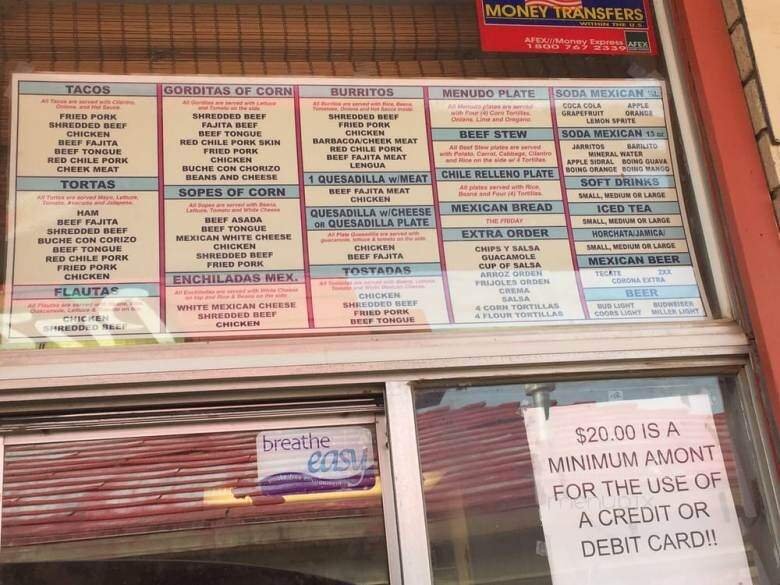 MONEY TRANSFERS
WITHIN THE U.S.
AFEX///Money Express
1 800 767 2339
AFEX
TACOS
All Tacos are served with Cilantro,
Onions, and Hot Sauce
FRIED PORK
SHREDDED BEEF
CHICKEN
BEEF FAJITA
BEEF TONGUE
RED CHILE PORK
CHEEK MEAT
TORTAS
All Tortas are served Mayo, Lettuce,
Tomato, Avocado and Jalapeno.
HAM
BEEF FAJITA
SHREDDED BEEF
BUCHE CON CORIZO
BEEF TONGUE
RED CHILE PORK
FRIED PORK
CHICKEN
FLAUTAS
All Flautas are served with
Guacamole, Lettuce &
CHICKEN
SHREDDED BEEF
GORDITAS OF CORN
All Gorditas are served with Lettuce
and Tomato on the side
SHREDDED BEEF
FAJITA BEEF
BEEF TONGUE
RED CHILE PORK SKIN
FRIED PORK
CHICKEN
BUCHE CON CHORIZO
BEANS AND CHEESE
SOPES OF CORN
All Sopes are served with Beans,
Lettuce, Tomato and White Cheese
BEEF ASADA
BEEF TONGUE
MEXICAN WHITE CHEESE
CHICKEN
SHREDDED BEEF
FRIED PORK
ENCHILADAS MEX.
All Enchiladas are served with White Cheese
on top and Rice & Beans on the side
WHITE MEXICAN CHEESE
SHREDDED BEEF
CHICKEN
BURRITOS
All Burritos are served with Rice, Beans,
Tomatoes, Onions and Hot Sauce inside
SHREDDED BEEF
FRIED PORK
CHICKEN
BARBACOA/CHEEK MEAT
RED CHILE PORK
BEEF FAJITA MEAT
LENGUA
1 QUESADILLA w/MEAT
BEEF FAJITA MEAT
CHICKEN
QUESADILLA w/CHEESE
OR QUESADILLA PLATE
All Plate Quesadilla are served with
guacamole, lettuce & tomato on the side
CHICKEN
BEEF FAJITA
TOSTADAS
All Tostadas are served with Beans, Lettuce,
Tomato and White Mexican Cheese
CHICKEN
SHREDDED BEEF
FRIED PORK
BEEF TONGUE
MENUDO PLATE
All Menudo plates are served
with Four (4) Corn Tortillas,
Onions, Lime and Oregano
BEEF STEW
All Beef Stew plates are served
with Potato, Carrot, Cabbage, Cilantro
and Rice on the side w/ 4 Tortillas.
CHILE RELLENO PLATE
All plates served with Rice,
Beans and Four (4) Tortillas.
MEXICAN BREAD
THE FRIDAY
EXTRA ORDER
CHIPS Y SALSA
GUACAMOLE
CUP OF SALSA
ARROZ ORDEN
FRIJOLES ORDEN
CREMA
SALSA
4 CORN TORTILLAS
4 FLOUR TORTILLAS
SODA MEXICAN
COCA COLA APPLE
GRAPEFRUIT ORANGE
LEMON SPRITE
SODA MEXICAN 13 oz
JARRITOS BARILITO
MINERAL WATER
APPLE SIDRAL BOING GUAVA
BOING ORANGE BOING MANGO
SOFT DRINKS
SMALL, MEDIUM OR LARGE
ICED TEA
SMALL, MEDIUM OR LARGE
HORCHATA/JAMICA/
SMALL, MEDIUM OR LARGE
MEXICAN BEER
TECATE 2XX
CORONA EXTRA
BEER
BUD LIGHT BUDWEISER
COORS LIGHT MILLER LIGHT
breathe
easy
$20.00 IS A
MINIMUM AMONT
FOR THE USE OF
A CREDIT OR
DEBIT CARD!!